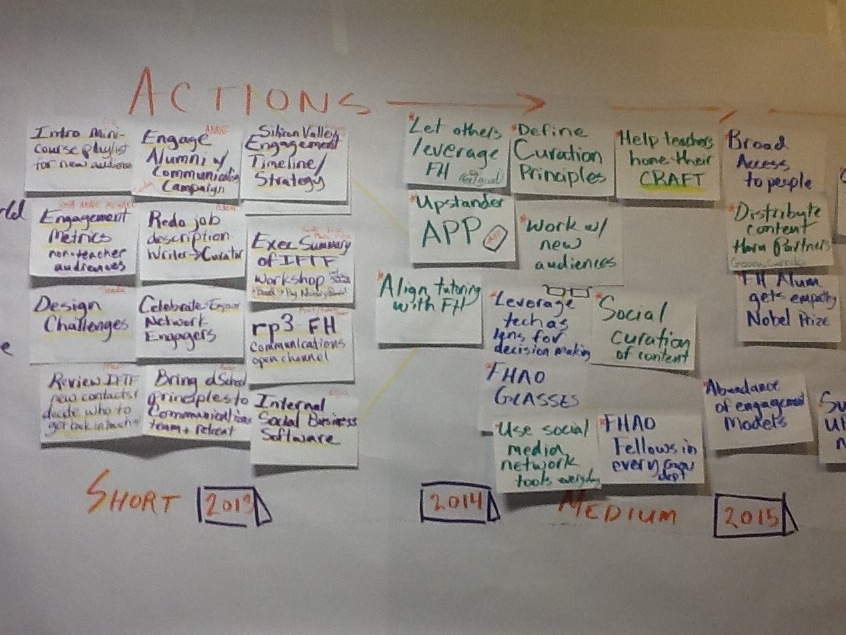 ACTIONS
Intro Mini-
course playlist
for new audience
Engage
Alumni w/
Communication
Campaign
Silicon Valley
Engagement
Timeline/
Strategy
Engagement
Metrics
non-teacher
audiences
Redo job
description
Writer → Curator
Exec Summary
of IFTF
Workshop
Design
Challenges
Celebrate
Network
Engagers
rp3 FH
Communications
open channel
Review IFTF
new contacts/
decide who to
get back in touch
Bring dSchool
principles to
Communications
team + retreat
Internal
Social Business
Software
*Let others
leverage
FH
*Define
Curation
Principles
*Help teachers
hone their
CRAFT
Broad
Access
to people
*Upstander
APP
*Work w/
new
audiences
*Distribute
content
thru Partners
*Align tutoring
with FH
*Leverage
tech as
lens for
decision making
*Social
curation
of content
FH Alum
gets empathy
Nobel Prize
*FHAO
GLASSES
*Use social
media
network
tools everyday
*FHAO
Fellows in
every
dept
Abundance
of engagement
Models
SHORT 2013
2014
MEDIUM
2015